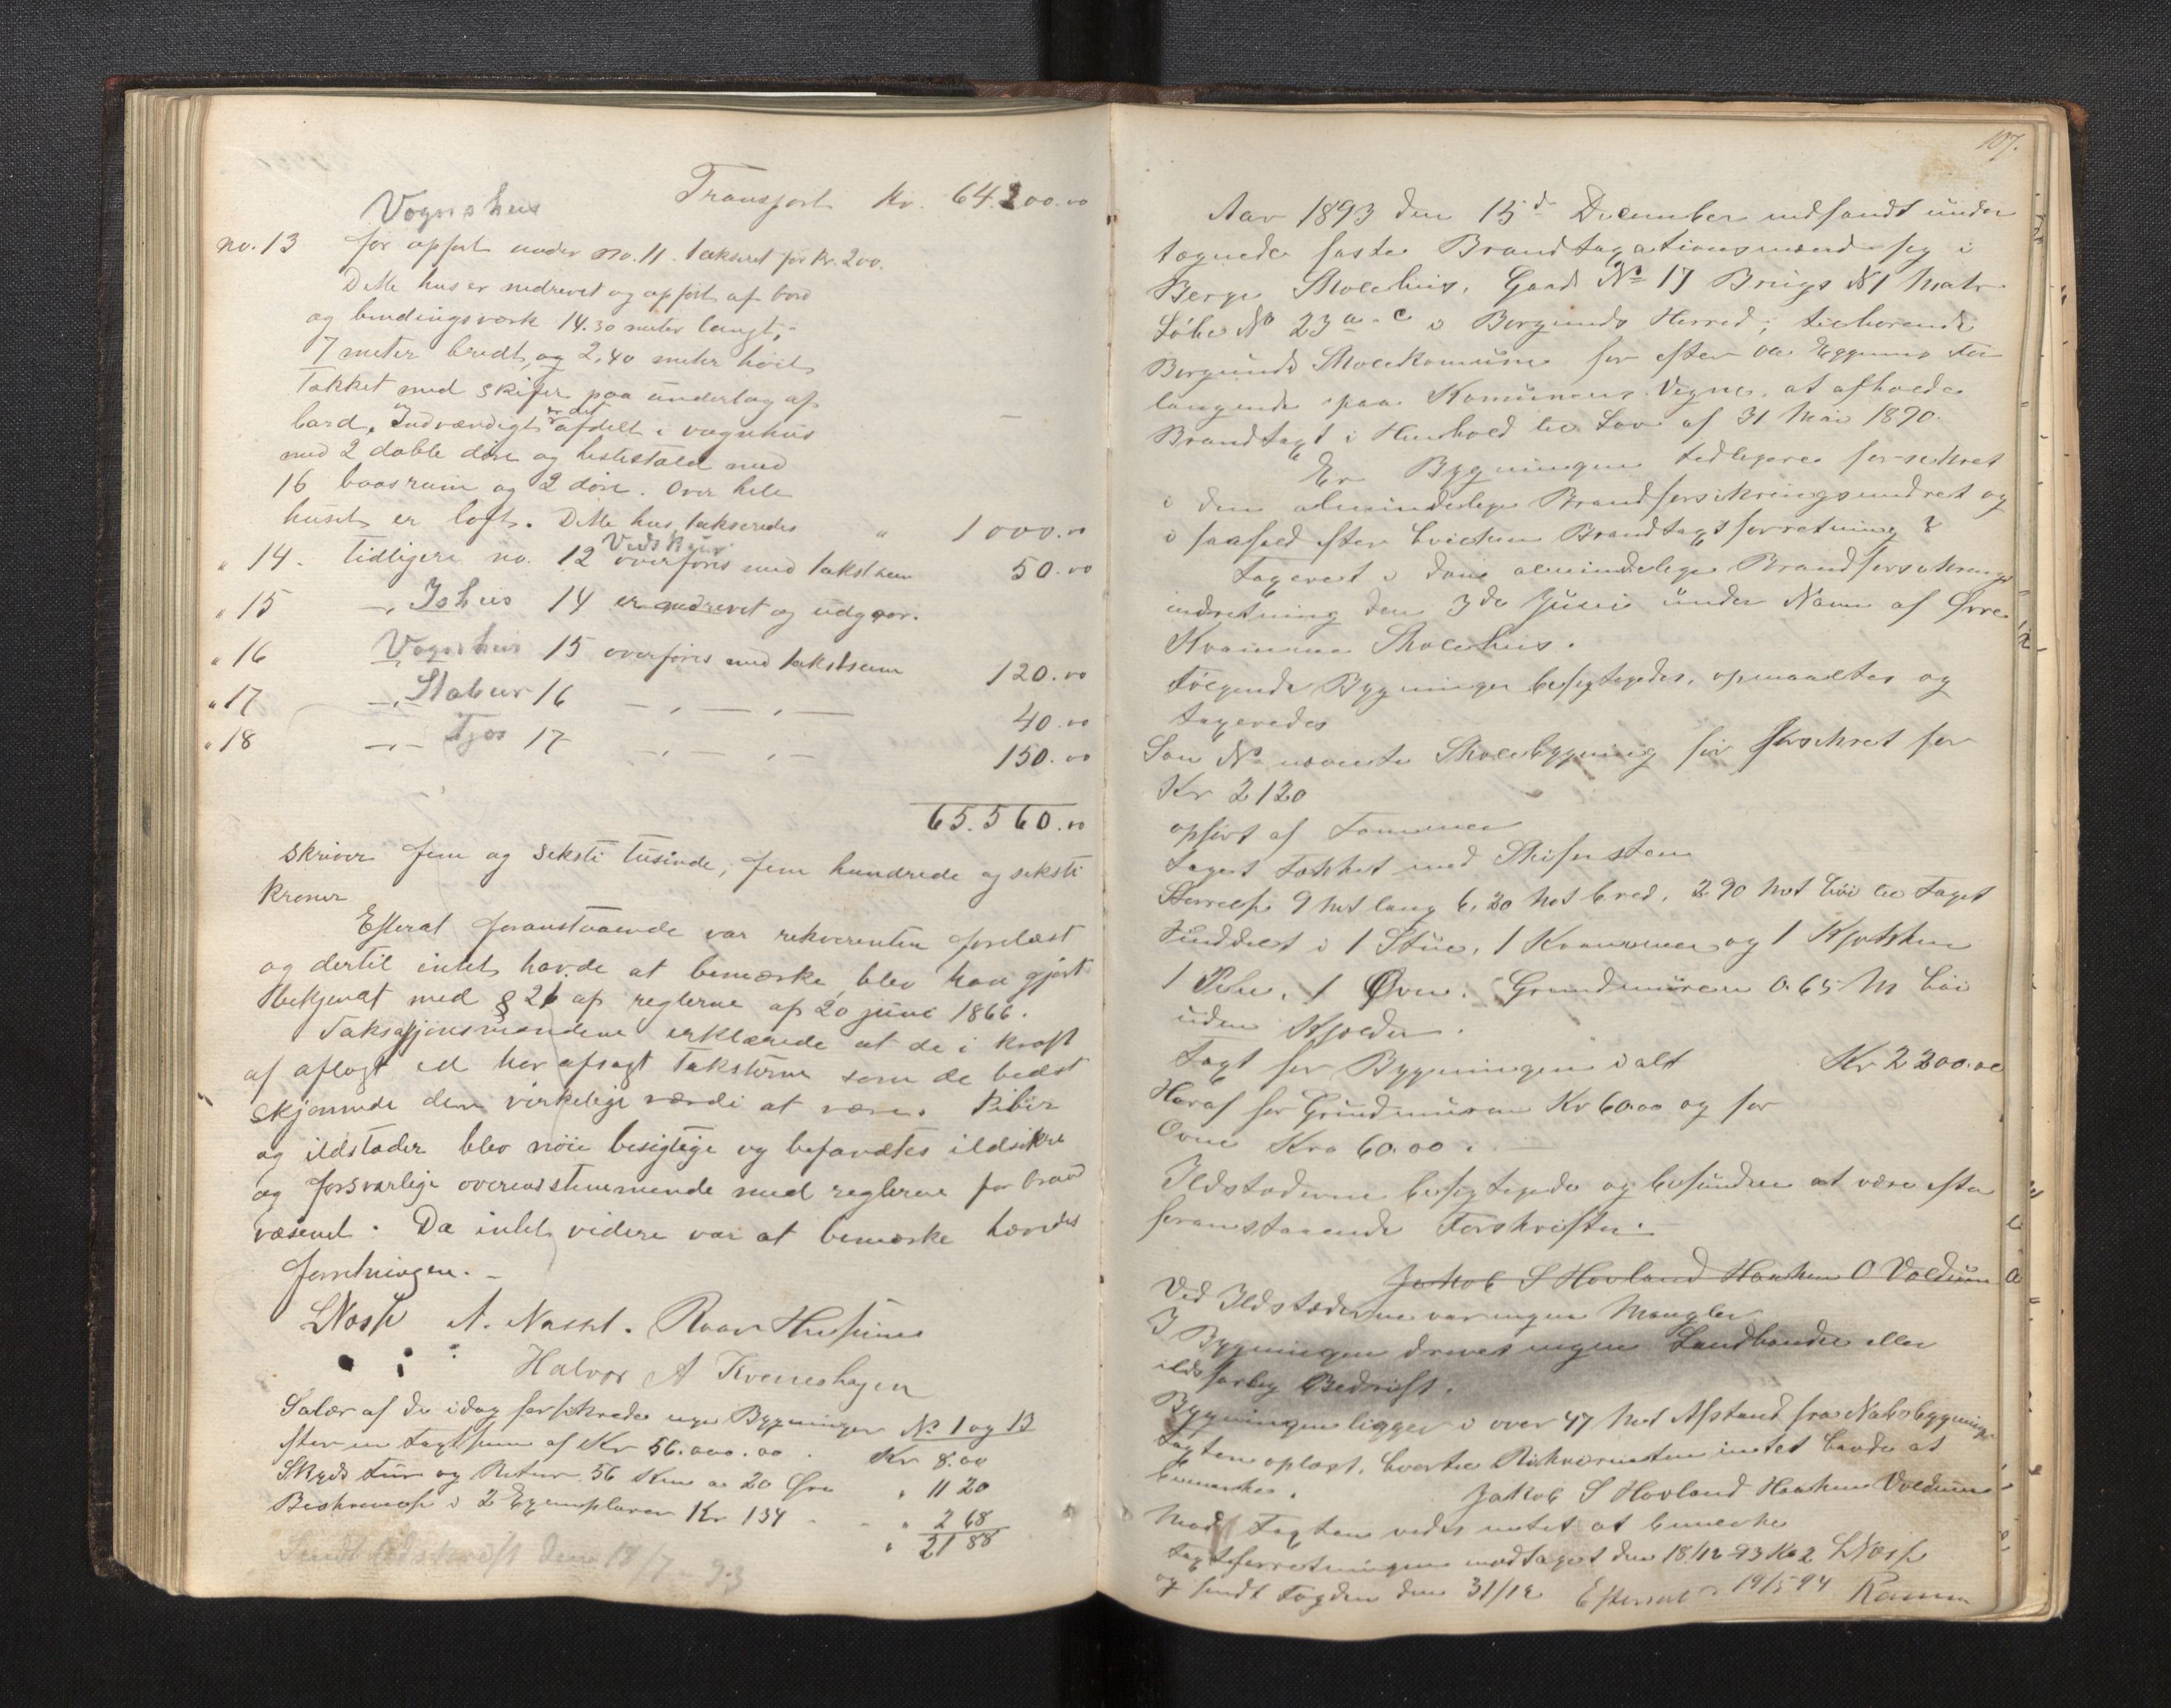 Transport Kr. 64.200.00
Vognshus
no. 13 før opført under no. 11. takseret for kr. 200.
Dette hus er nedrevet og opført af bord
og bindingsværk 14.30 meter langt,
7 meter bredt, og 2,40 meter höit
Takket med skifer paa underlag af
bord. Indvændigt er det afdelt i vognhus
med 2 doble döre og hestestald med
16 baasrum og 2 döre. Over hele
huset er loft. Dette hus takseredes " 1000.00
" 14. Tidligere no. 12 Vedskjur overføres med takstsum 50.00
" 15 —"— Ishus 14 er nedrevet og udgaar.
" 16 Vognhus 15 overføres med takstsum 120.00
" 17 —"— Stabur 16 — " — " — 40.00
" 18 —"— Fjøs 17 — " — " — 150.00
65.560.00
skriver fem og seksti tusinde, fem hundrede og seksti
kroner
Efterat foranstaaende var rekvirenten forelæst
og dertil intet havde at bemærke, blev han gjort
bekjendt med § 26 af reglerne af 20 juni 1866.
Taksasjonsmændene erklærede at de i kraft
af aflagt ed har afsagt taksterne som de bedst
skjønnede den virkelige værdi at være. Piber
og ildstæder blev nöie besigtige og befandtes ildsikre
og forsvarlige overensstemmende med reglerne for brand
væsenet. Da intet videre var at bemærke hævedes
forretningen.
LNæss A. Næsset. Roar Husum
Halvor A Kvemshagen
Salær af de idag forsikrede nye Bygninger No 1 og 13
efter en Taxtsum af Kr 56.000.00 . Kr 8.00
Skyds Tur og Retur 56 Km a 20 Øre " 11 20
Beskrivelse i 2 Exemplarer Kr 134 - - " 2 68
" 21 88
Sendt Udskrift den 18/7 - 93
107.
Aar 1893 den 15d December indfandt under
tegnede faste Brandtaxationsmænd sig i
Berge Skolehus, Gaards No 17 Brugs N 1 Matr
Løbe No 23 a-c i Borgunds Herred, tilhørende
Borgunds Skolekomune for efter Ole Eggums For
langende paa Komunens Vegne, at afholde
Brandtaxt i Henhold til Lov af 31 Mai 1890.
Er Bygningen tidligere forsikret
i den almindelige Brandforsikringsindret og
i saafald efter hvilken Brandtaxtforretning?
Taxeret i den almindelige Brandforsikrings
indretning den 3de Juni under Navn af Øvre
Kvamme Skolehus.
Følgende Bygninger besigtigedes, opmaaltes og
taxeredes
Som No nævnte Skolebygning før forsikret for
Kr 2120
opført af Tømmer
Taget Tækket med Skifersten
Størrelse 9 Met lang 6,30 Met bred, 2.90 Met høi til Taget
Inddelt i 1 Stue, 1 Kammer og 1 Kjøkken
1 Pibe, 1 Øvn. Grundmuren 0.65 M høi
uden Kjælder.
Taxt for Bygningen i alt Kr 2300.00
Heraf for Grundmuren Kr 60.00 og for
Ovne Kro 60.00.
Ildstederne besigtigede og befunden at være efter
foranstaaende Forskrifter.
Jakob S Hovland Haakon O Voldum
Ved Ildstæderne var ingen Mangler
I Bygningen drives ingen Landhandel eller
ildsfarlig Bedrift.
Bygningen ligger i over 47 Met Afstand fra Nabobygninger
Taxten oplæst, hvortil Rekvirenten intet havde at
bemerke.
Jakob S Hovland Haakon Voldum
Mod Taxten vides intet at bemerke
Taxtforretningen modtaget den 18/12 93 Kl 2 LNæss
og sendt Fogden den 31/12 Efterset 19/5 94